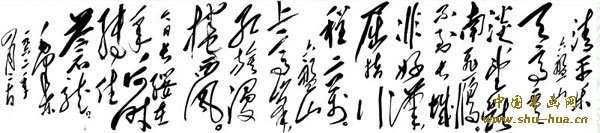 清平乐
六盘山
天高云
淡望断
南飞雁。
不到长城
非好漢，
屈指行
程二万。
六盘山
上高峰，
红旗漫
捲西风。
今日长缨在
手，何时
缚住
苍龙。
毛泽东
中国书画网
www.shu-hua.cn